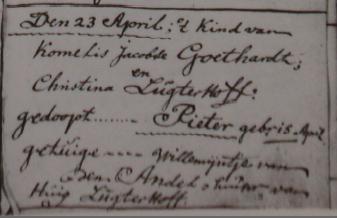 Den 23 April; 't Kind van
Kornelis Jacobse Goethardt;
en
Christina Lugterhoff:
gedoopt........ Pieter geb: 15 April
getuige ---- Willemijntje van
den Andel, huisvr van
Huig Lugterhoff